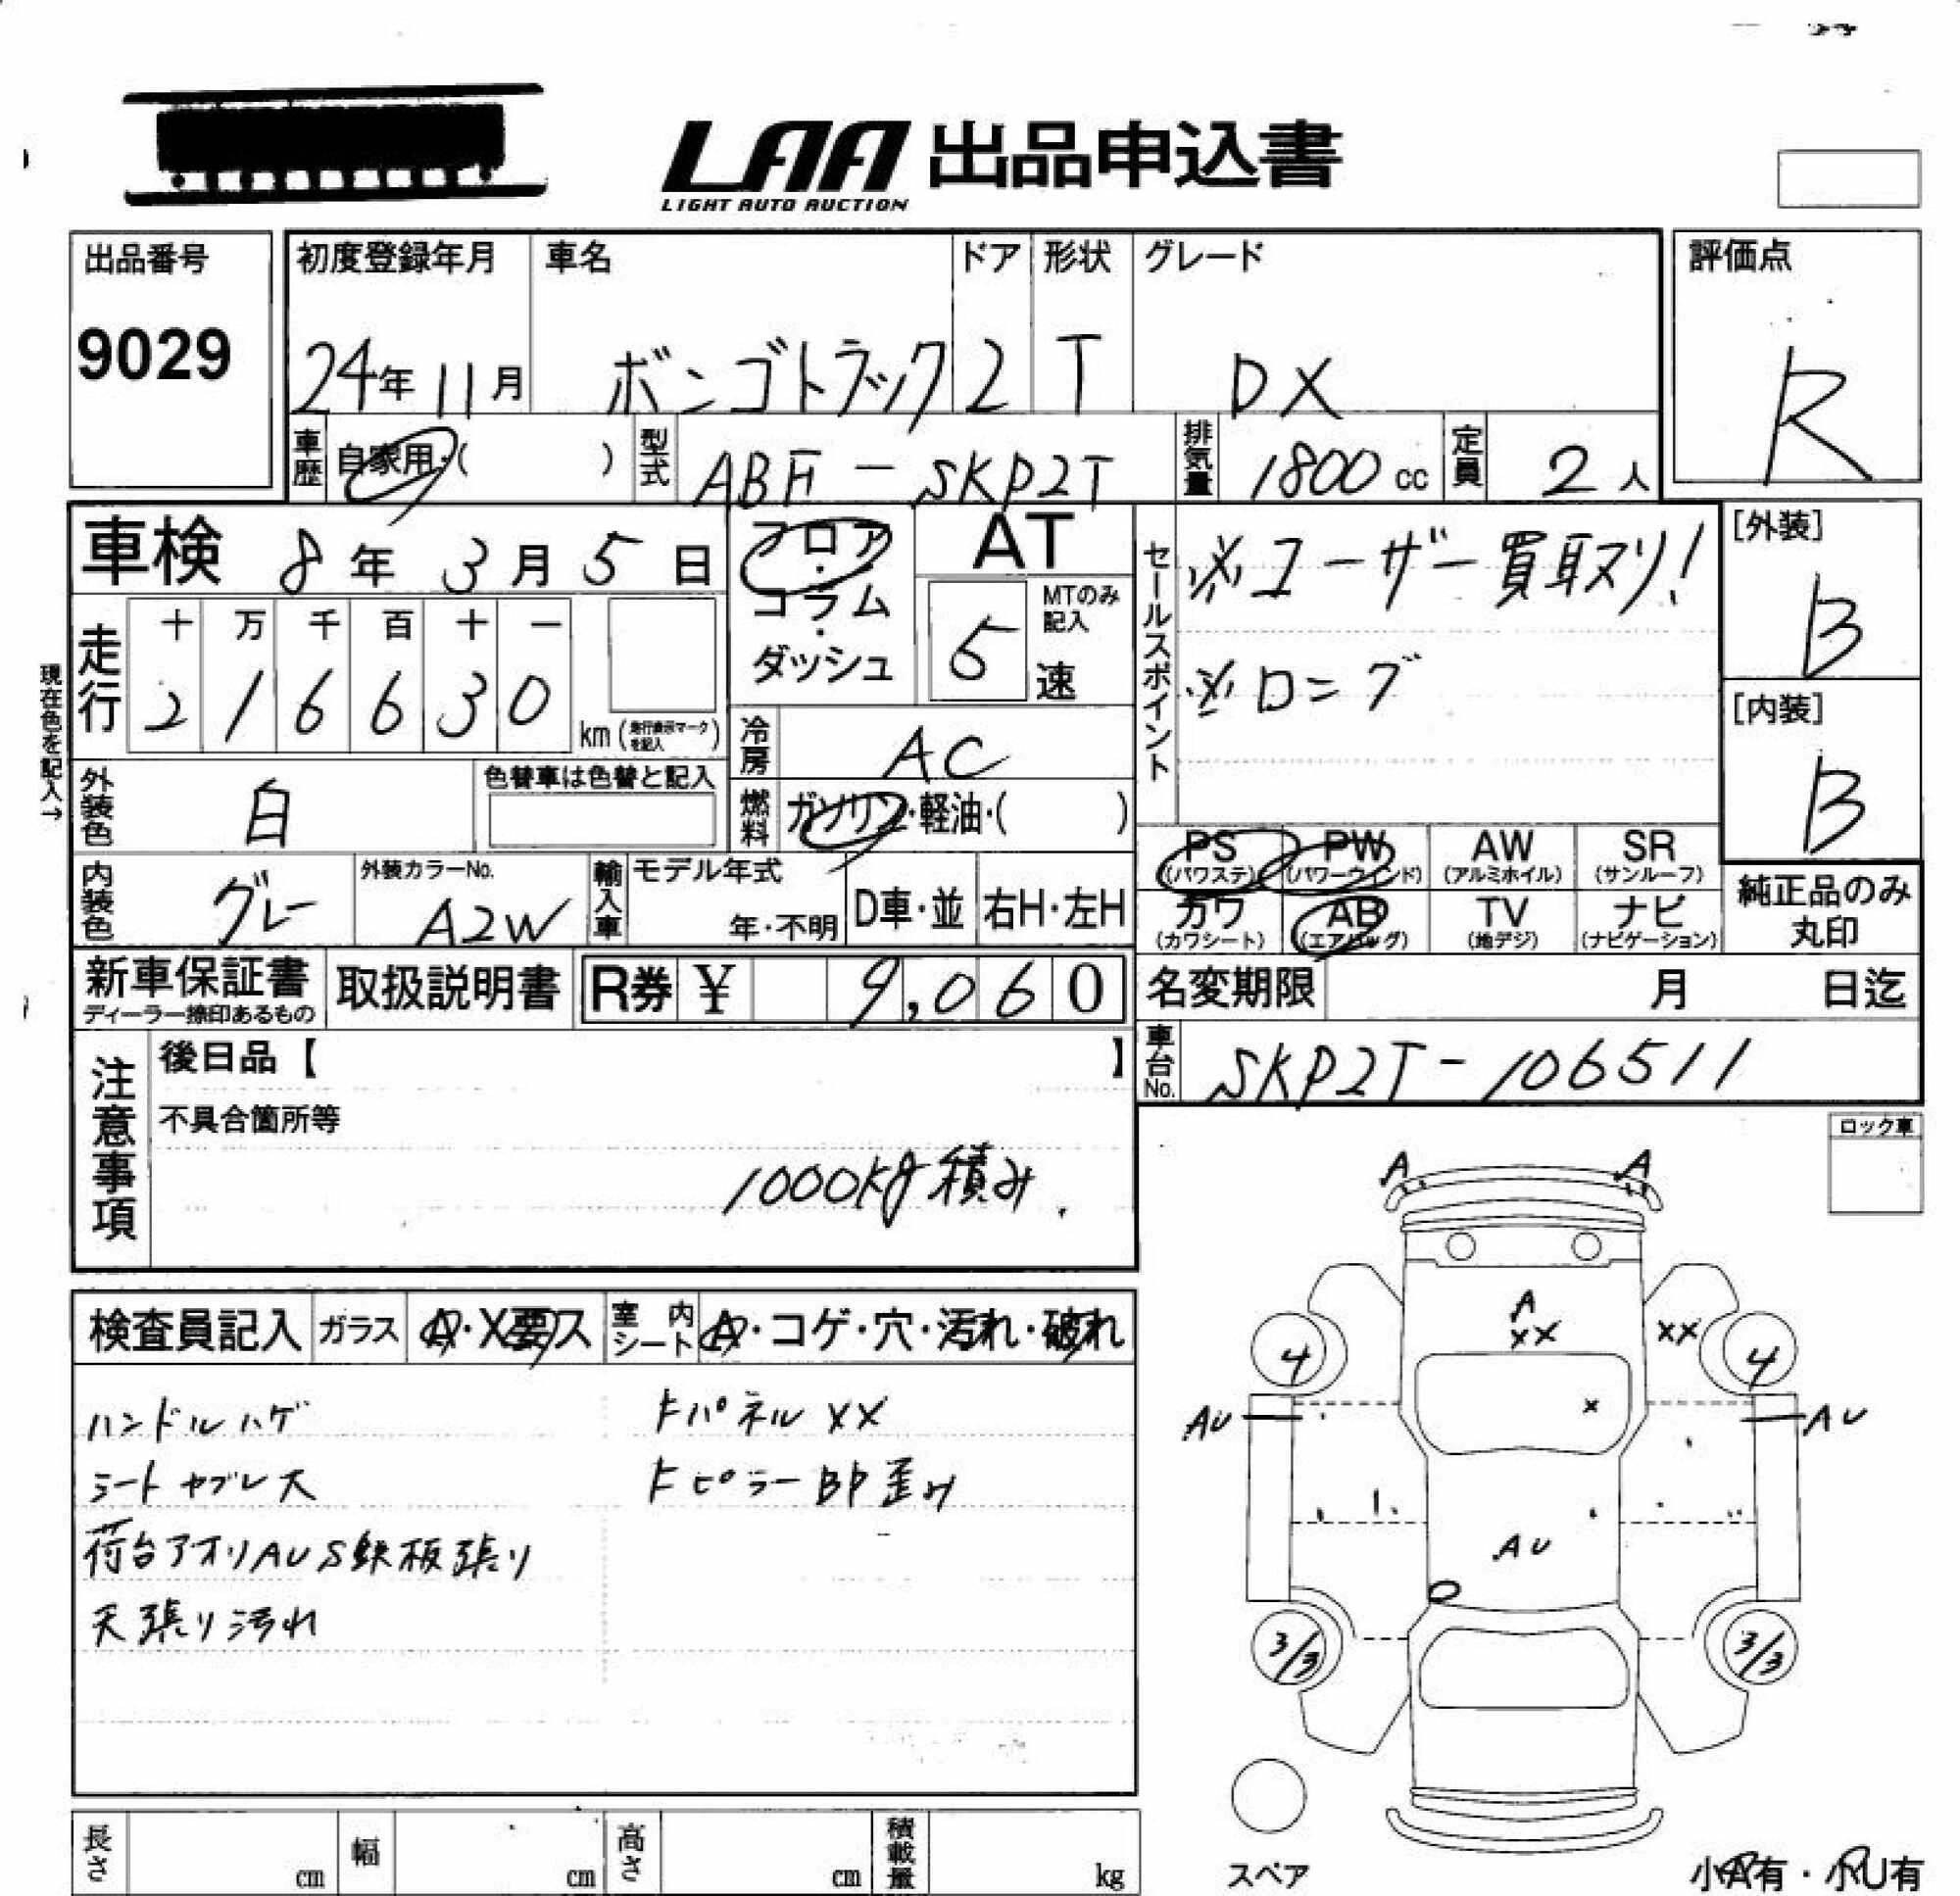 LAA 出品申込書
LIGHT AUTO AUCTION
出品番号
9029
初度登録年月
24年 11月
車名
ボンゴトラック
ドア
2
形状
T
グレード
DX
評価点
R
車歴 自家用・( )
型式 ABF-SKP2T
排気量 1800 cc
定員 2人
車検 8年 3月 5日
フロア・コラム・ダッシュ
AT
MTのみ記入
5速
セールスポイント
※ユーザー買取り!
※ロング
[外装]
B
[内装]
B
現在色を記入→
走行
十 万 千 百 十 一
2 1 6 6 3 0
km (走行表示マークを記入)
冷房 AC
外装色 白
色替車は色替と記入
燃料 ガソリン・軽油・( )
内装色 グレー
外装カラーNo.
A2W
輸入車
モデル年式
年・不明
D車・並
右H・左H
PS (パワステ)
PW (パワーウィンド)
AW (アルミホイル)
SR (サンルーフ)
カワ (カワシート)
AB (エアバッグ)
TV (地デジ)
ナビ (ナビゲーション)
純正品のみ丸印
新車保証書
ディーラー捺印あるもの
取扱説明書
R券 ¥ 9,060
名変期限 月 日迄
車台No. SKP2T-106511
注意事項
後日品【 】
不具合箇所等
1000kg積み.
ロック車
検査員記入
ガラス A・X要ス
室内シート A・コゲ・穴・汚れ・破れ
ハンドルハゲ
シートヤブレ大
荷台アオリAUS鉄板張り
天張り汚れ
FパネルXX
FピラーBP歪み
A A
A
XX XX
4 4
X
AU AU
AU
3/3 3/3
スペア
長さ cm
幅 cm
高さ cm
積載量 kg
小A有・小U有